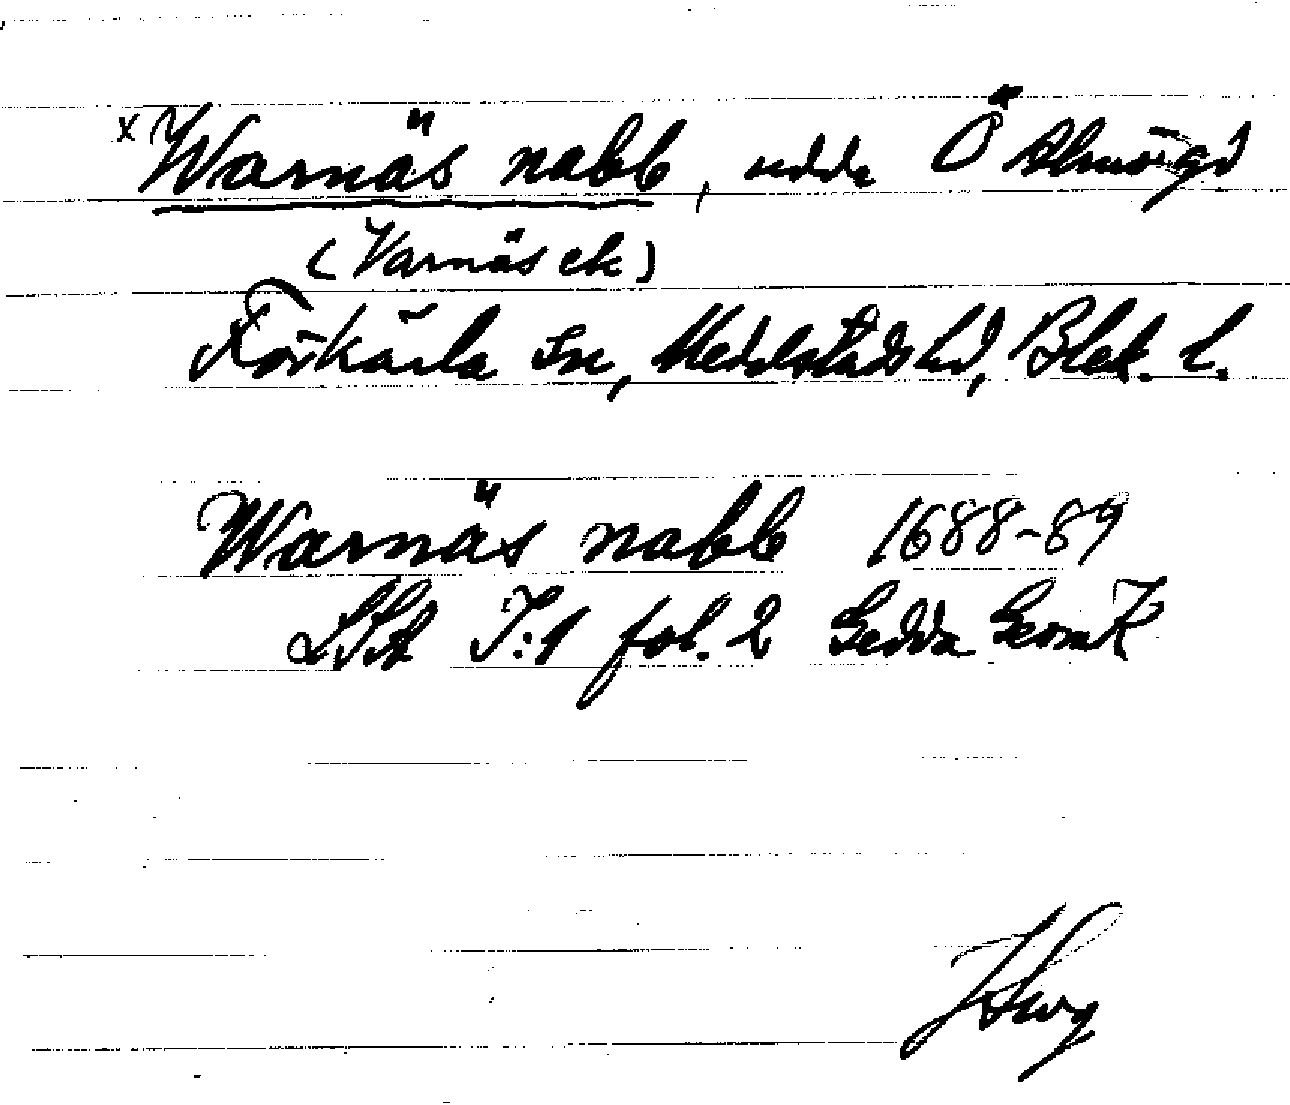 x Warnäs nabb, udde Ö Almö gd
(Varnäs ek)
Förkärla sn, Medelstads hd, Blek. l.
Warnäs nabb 1688-89
LSA I:1 fol. 2 Gedda GeomK